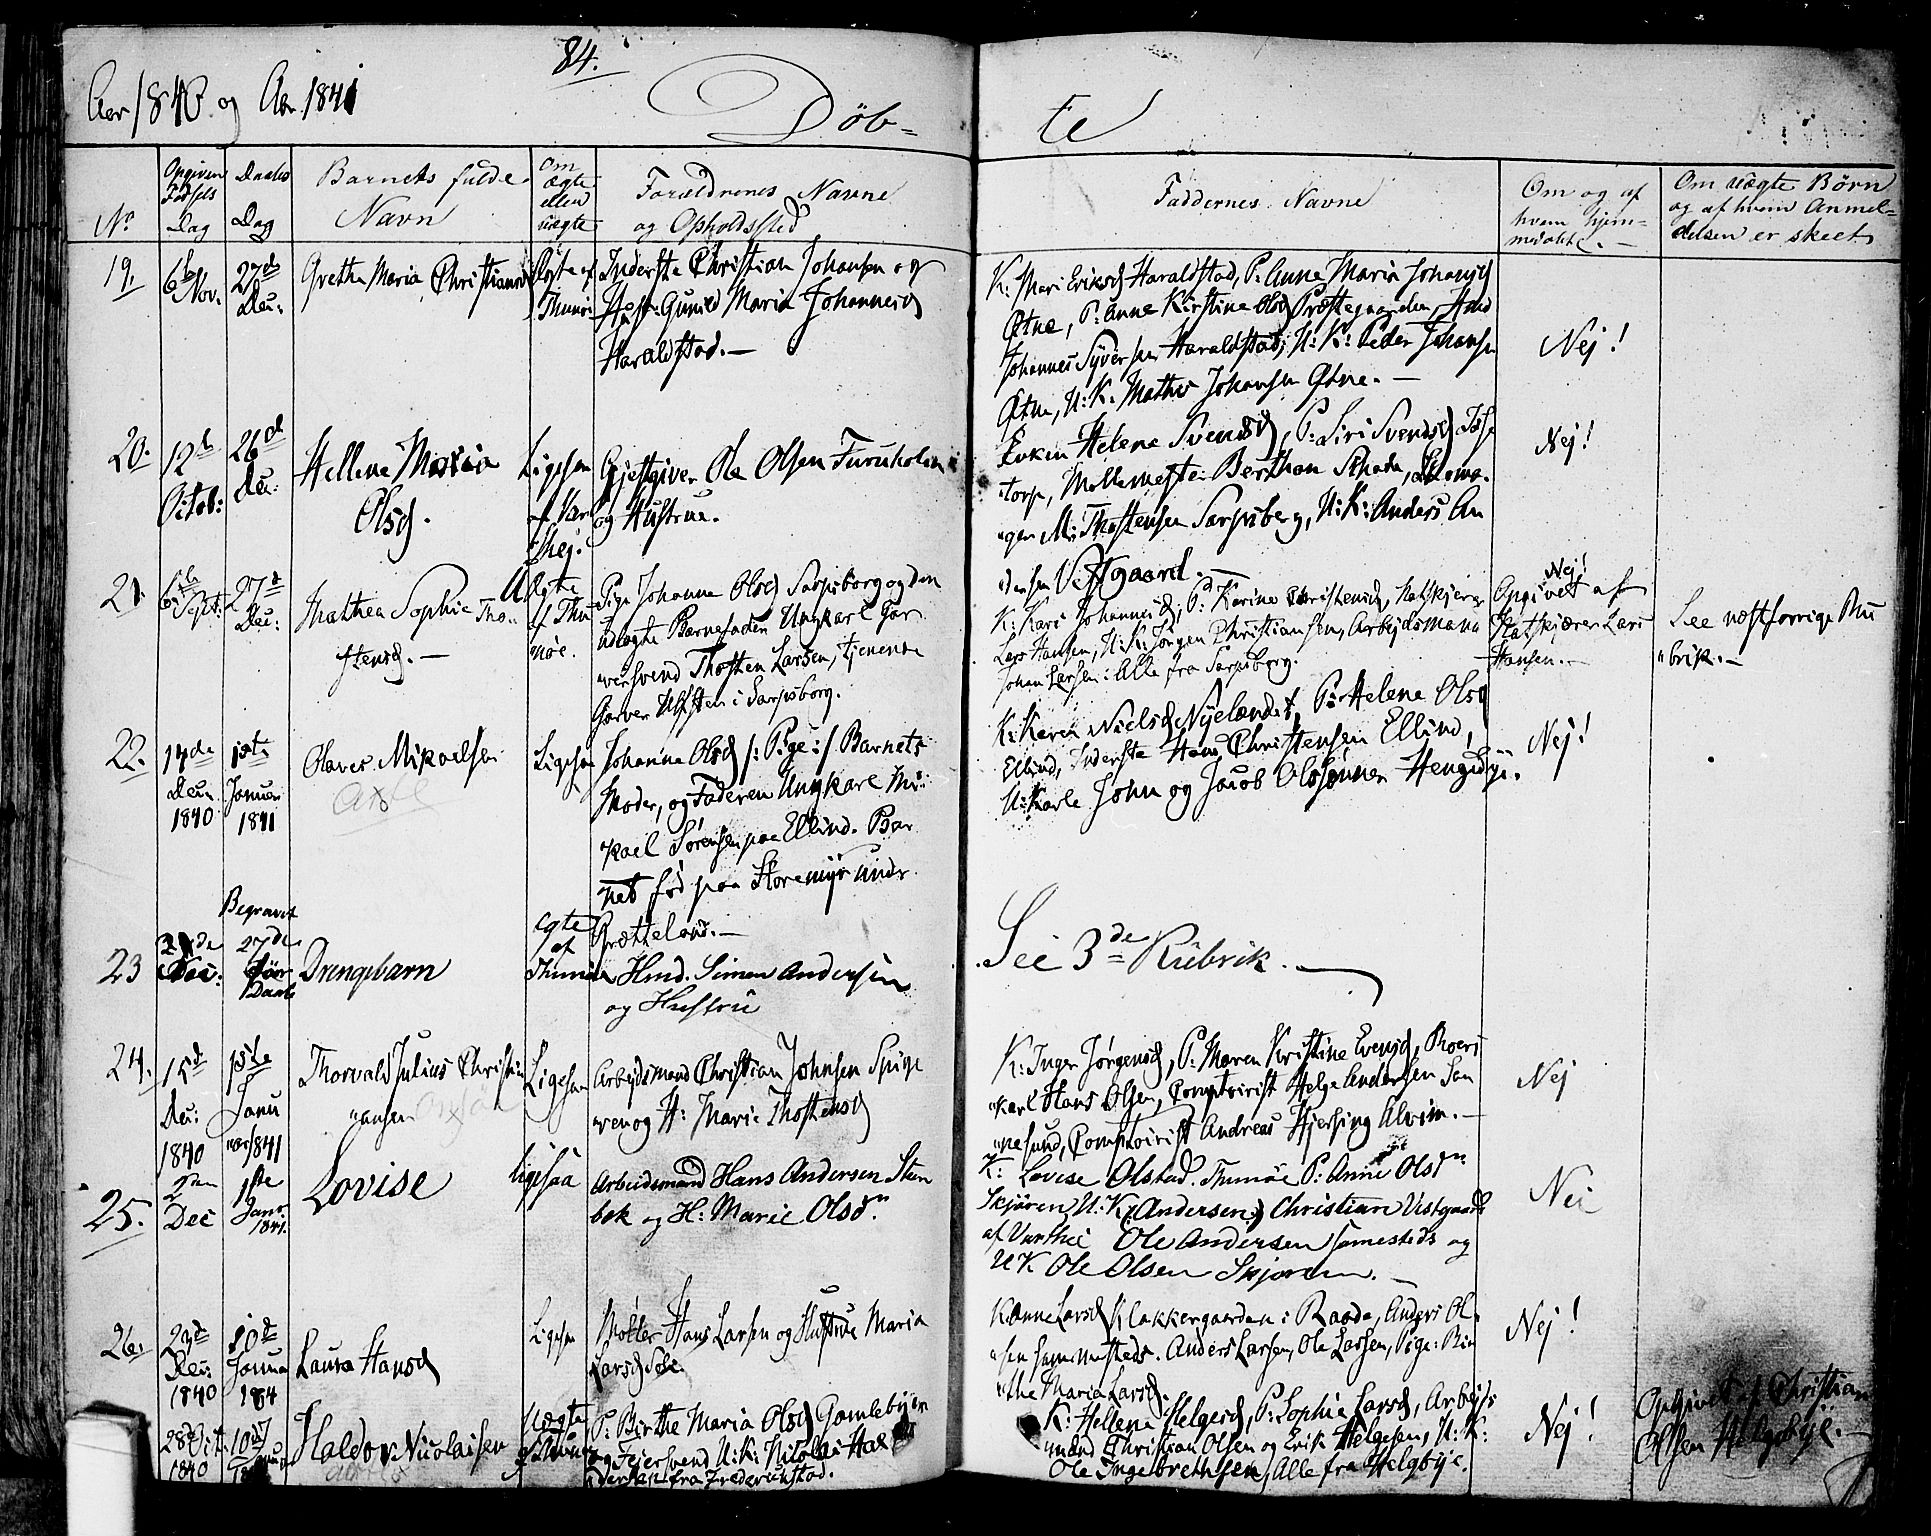 84.
Aar 1840. og Aar 1841
Döb=
te
No
Opgiven Fødsels Dag
Daabs Dag
Barnets fulde Navn
Om ægte eller uægte
Forældrenes Navne og Opholdssted
Faddernes Navne
Om og af hvem hjem-
døbt.
Om uægte Børn
og af hvem Anmel=
delsen er skeet
19.
6te Nov:
27de Dec:
Grethe Maria Christiansd
Ægte af
Thunø
Inderste Christian Johansen og
Hust: Gunild Maria Johannesd
Haraldstad.—
K: Mari Eriksd Haraldstad, P: Anne Maria Johansd
Østne, P: Anne Kirstine Olsd Præstegaarden,
Johannes Syversen Haraldstad, U: K: Peder Johansen
Østne, U. K. Mathis Johansen Østne.—
Nej!
20.
12te
Octob:
26de
Dec:
Hellene Maria
Olsd.
Ligesaa
af Var
thej.
Gjestgiver Ole Olsen Furuholm
og Hustrue.
Enken Helene Svendsd, P: Siri Svendsd Tose
torp, Møllemester Berthon Schade,
M: Thostensen Sarpsborg, U: K: Anders An
dersen Vestgaard.—
Nej!
21.
6te Sept:
27de
Dec:
Mathea Sophie Tho=
stensd.—
Uægte
af Thu
nøe.
Pige Johanne Olsd Sarpsborg og den
udlagte Barnefader Ungkarl Gar
versvend Thosten Larsen, tjenende
Garver i Sarpsborg.
K: Kari Johannesd, P: Karine Christensd, Natskjærer
Lars Hansen, U: K: Jørgen Christiansen, Arbejdsmand
Johan Larsen: Alle fra Sarpsborg.
Nej!
Opgivet af
Natskjærer Lars
Hansen.—
See næstforrige Ru
brik.—
22.
14de
Decr
1840
1ste
Januar
1841
Olaves Mikaelsen
Ligesaa
Johanne Olsd /: Pige :/ Barnets
Moder, og Faderen Ungkarl Mi=
kael Sørensen paa Ellind. Bar
net fød paa Storemyr under
Grætteland.—
K: Karen Nielsd Nyelændet, P: Helene Olsd
Ellind, Inderste Hans Christensen Ellind,
U: Karle John og Jacob Olssønner
Nej!
23
Dec:
Begravet
27de
før
Daab
Drengebarn
egte
af
Thunøe
Hmd. Simen Andersen
og Hustru
See 3de Rubrik.—
24.
15de
Dec:
1840
1ste
Janu
ar 1841
Thorvald Julius Christi
ansen
Ligesaa
Arbejdsmand Christian Johnsen Spige
ren og H: Marie Thostensd
K: Inger Jørgensd, P: Maren Kristine Evensd, Roers
karl Hans Olsen, Comptoirist Helge Andersen San
nesund, Comptoirist Andreas Hjersing Alvim.—
Nej
25.
2den
Dec
1ste
Janr
1841.
Lovise
ligesaa
Arbeidsmand Hans Andersen Sten
bek og H: Marie Olsdn
K: Lovise Olstad. Thunøe P: Anne Olsdn
Skjøren, U: K (Andersen) Christian Vestgaard
af Varthei Ole Andersen samesteds og
U K Ole Olsen Skjøren.—
Nei
26.
23de
Dec:
1840
10de
Janua
184
Laura Hansd
Ligesaa
Møller Hans Larsen og Hustrue Maria
Larsd
K: Anne Larsd Klakkergaarden i Raade, Anders Ol=
sen sammesteds. Anders Larsen, Ole Larsen, Pige: Bir
the Maria Larsd.
Nej!
28de Oct.
1840
10de
Januar
Haldor Nicolaisen
Uægte
P: Birthe Maria Olsd Gamlebyen
og Fejersvend U: K: Nicolai Hal
dersen fra Frederikstad.
K: Hellene Helgesd, P: Sophie Larsd, Arbejds
mænd Christian Olsen og Erik Helgesen, U: K:
Ole Ingebrethsen, Alle fra Helgbye.
Nej!
Opgivet af Christian
Olsen Helgebye.—